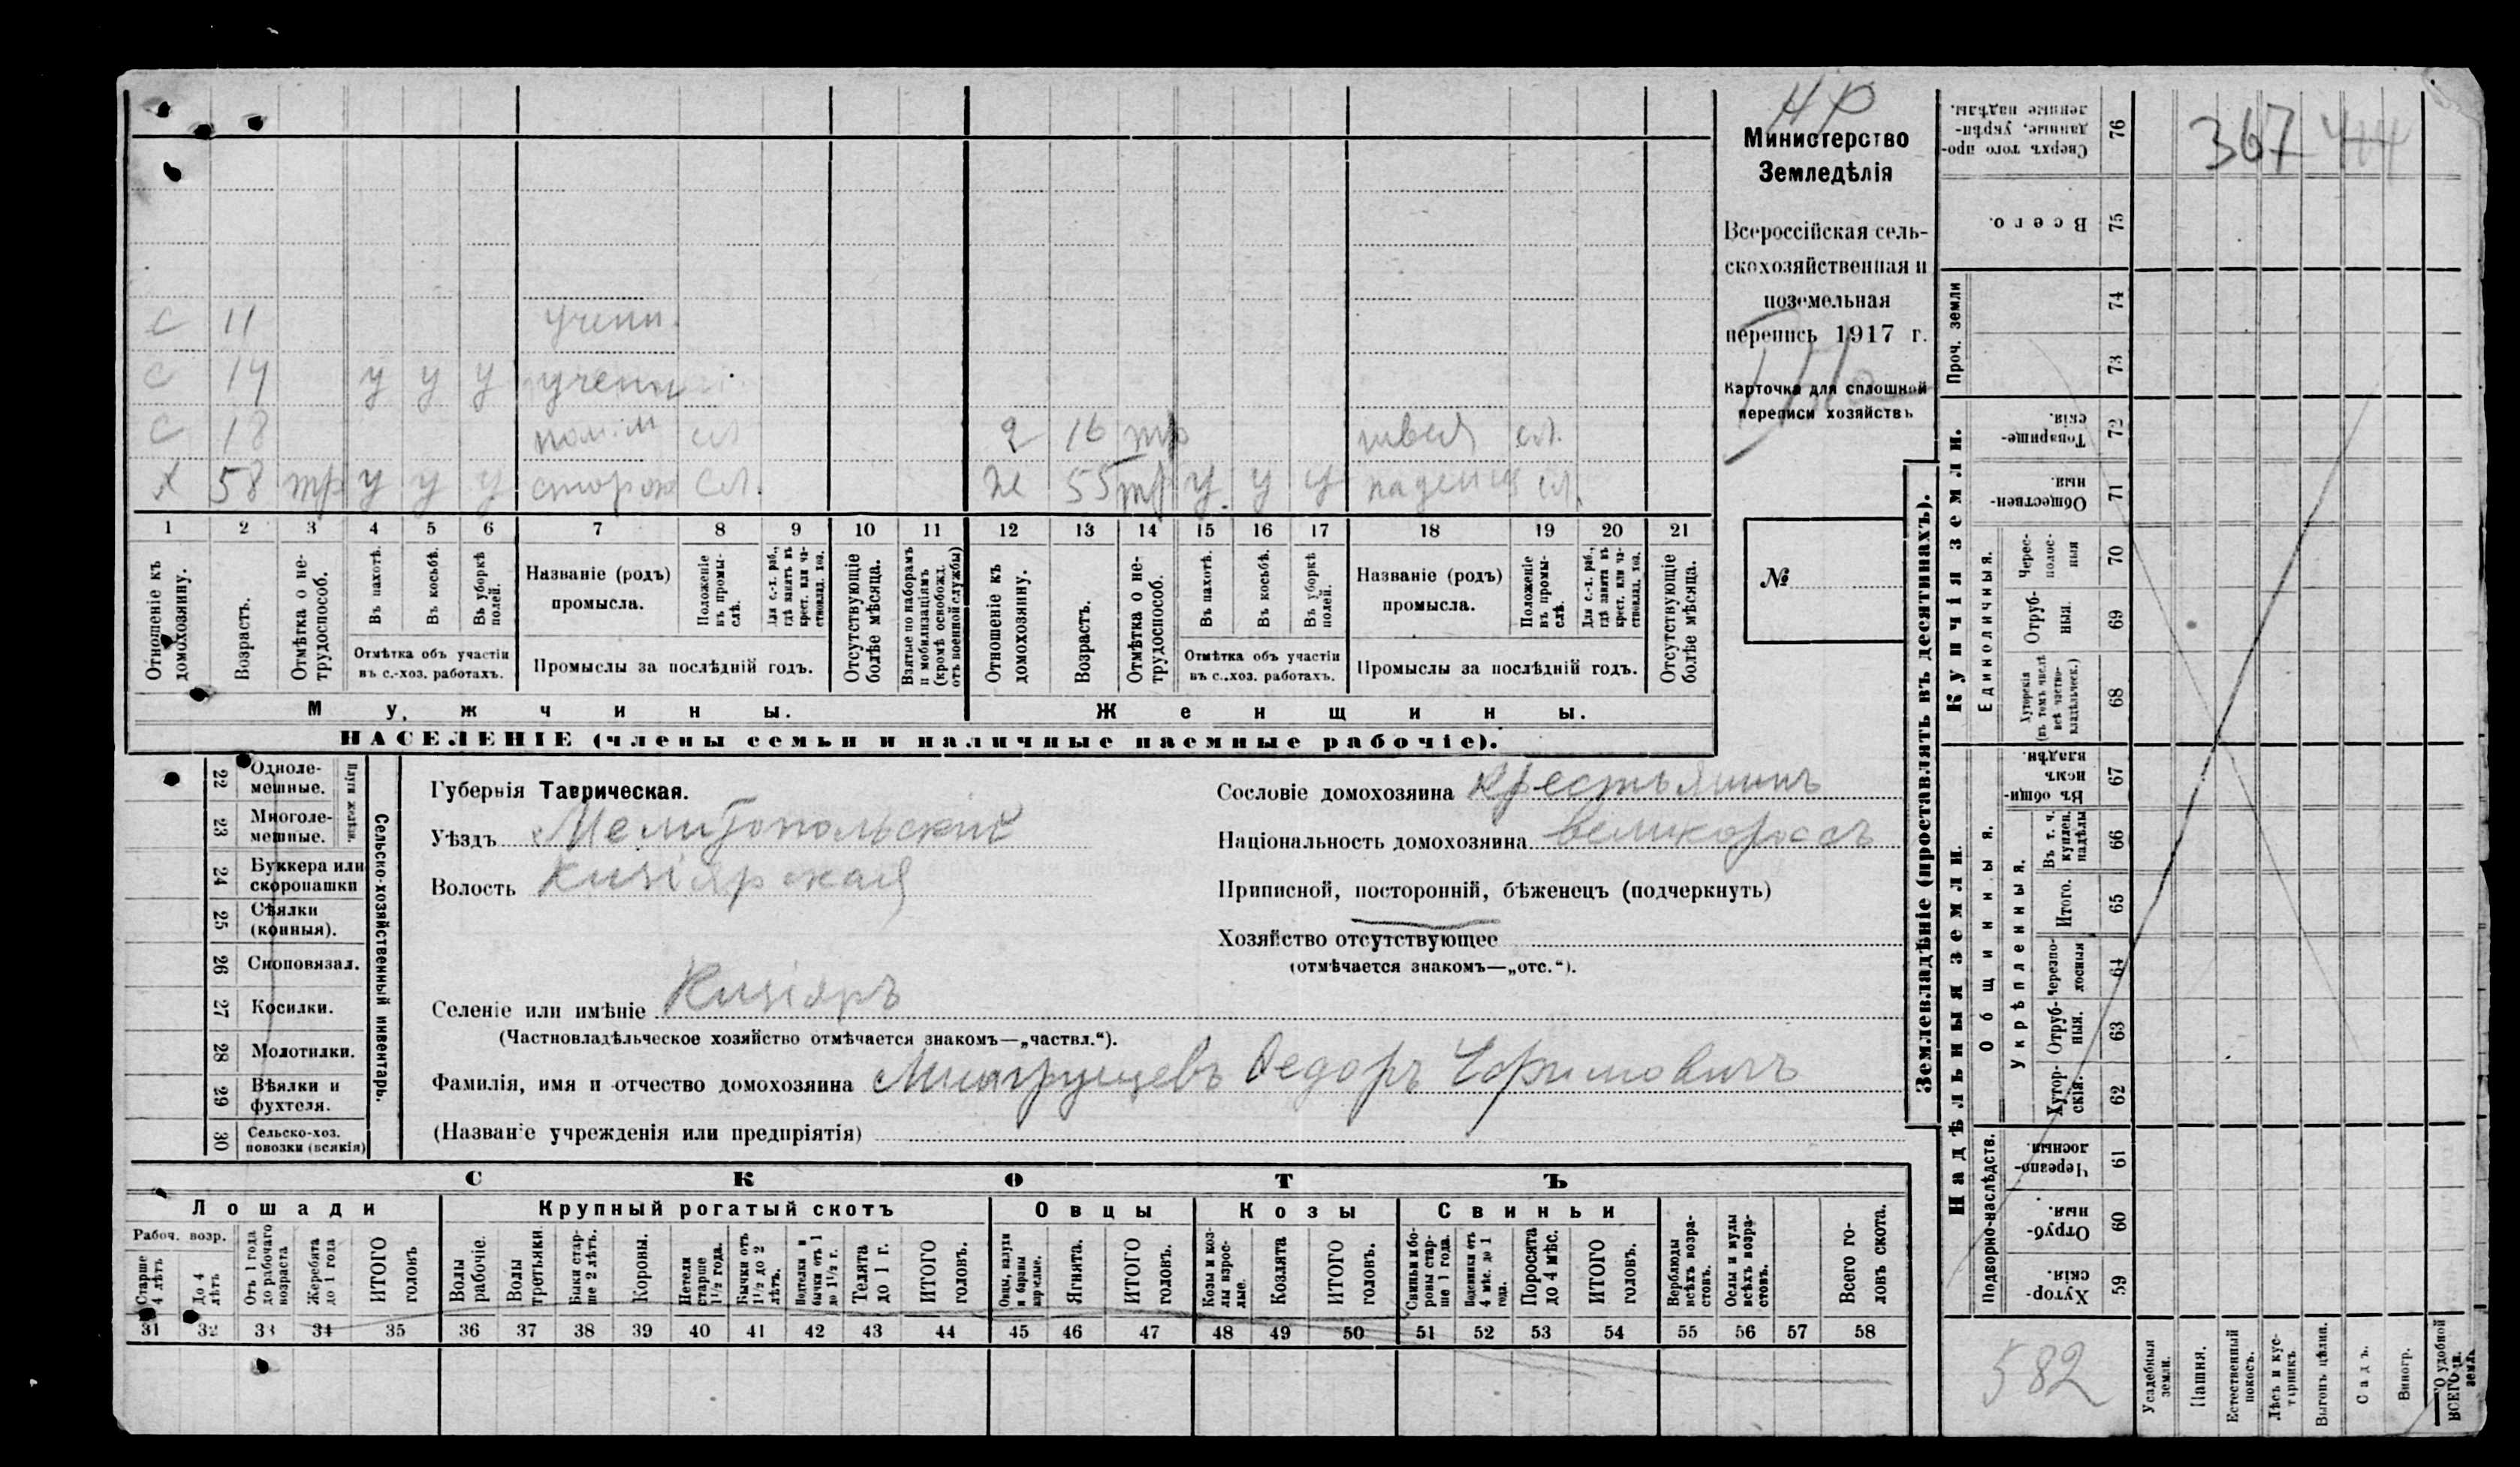 НР
Министерство
Земледѣлія
Всероссійская сель-
скохозяйственная и
поземельная
перепись 1917 г.
Карточка для сплошной
переписи хозяйствъ
№
С 11 учени.
С 14 у у у учени
С 18
Х 58 тр у у у сторож сл.
2 16 тр швея сл.
ж 55 тр у у у сл.
1 2 3 4 5 6 7 8 9 10 11 12 13 14 15 16 17 18 19 20 21
Отношеніе къ домохозяину.
Возрастъ.
Отмѣтка о не-трудоспособ.
Въ пахотѣ.
Въ косьбѣ.
Въ уборкѣ полей.
Отмѣтка объ участіи
въ с.-хоз. работахъ.
Названіе (родъ)
промысла.
Положеніе въ промы-слѣ.
Для с.-х. раб., гдѣ занятъ въ крест. или ча-стновлад. хоз.
Промыслы за послѣдній годъ.
Отсутствующіе болѣе мѣсяца.
Взятые по наборамъ и мобилизаціямъ (кромѣ освобожд. отъ военной службы)
Отношеніе къ домохозяину.
Возрастъ.
Отмѣтка о не-трудоспособ.
Въ пахотѣ.
Въ косьбѣ.
Въ уборкѣ полей.
Отмѣтка объ участіи
въ с.-хоз. работахъ.
Названіе (родъ)
промысла.
Положеніе въ промы-слѣ.
Для с.-х. раб., гдѣ занята въ крест. или ча-стновлад. хоз.
Промыслы за послѣдній годъ.
Отсутствующіе болѣе мѣсяца.
Мужчины.
Женщины.
НАСЕЛЕНІЕ (члены семьи и наличные наемные рабочіе).
22 Одноле-мешные.
23 Многоле-мешные.
24 Буккера или скоропашки
25 Сѣялки (конныя).
26 Сноповязал.
27 Косилки.
28 Молотилки.
29 Вѣялки и фухтеля.
30 Сельско-хоз. повозки (всякія)
Сельско-хозяйственный инвентарь.
Губернія Таврическая.
Уѣздъ Мелитопольскій
Волость Кизіярская
Сословіе домохозяина крестьянинъ
Національность домохозяина великороссъ
Приписной, посторонній, бѣженецъ (подчеркнуть)
Хозяйство отсутствующее
(отмѣчается знакомъ—„отс.“).
Селеніе или имѣніе Кизіяръ
(Частновладѣльческое хозяйство отмѣчается знакомъ—„частвл.“).
Фамилія, имя и отчество домохозяина Федоръ
(Названіе учрежденія или предпріятія)
СКОТЪ
Лошади
Рабоч. возр.
Старше 4 лѣтъ
До 4 лѣтъ
Отъ 1 года до рабочаго возраста
Жеребята до 1 года
ИТОГО головъ
Крупный рогатый скотъ
Волы рабочіе.
Волы третьяки.
Быки стар-ше 2 лѣтъ.
Коровы.
Нетели старше 1½ года.
Бычки отъ 1½ до 2 лѣтъ.
Телята до 1 г.
ИТОГО головъ.
Овцы
Ягнята.
ИТОГО головъ.
Козы
Козы и коз-лы взрос-лые.
Козлята
ИТОГО головъ.
Свиньи
Свиньи и бо-ровы стар-ше 1 года.
Подсвинки отъ 4 мѣс. до 1 года.
Поросята до 4 мѣс.
ИТОГО головъ.
Верблюды всѣхъ возра-стовъ.
Ослы и мулы всѣхъ возра-стовъ.
Всего го-ловъ скота.
31 32 33 34 35 36 37 38 39 40 41 42 43 44 45 46 47 48 49 50 51 52 53 54 55 56 57 58
Землевладѣніе (проставлять въ десятинахъ).
Купчія земли.
Надѣльныя земли.
Проч. земли
Единоличныя.
Общинныя.
Укрѣпленныя.
Подворно-наслѣдств.
76 Сверхъ того про-данные, укрѣп-ленные надѣлы.
75 Всего.
74
73
72 Товарище-скія.
71 Обществен-ныя.
70 Черес-полос-ныя
69 Отруб-ныя.
68 Хуторскія (въ томъ числѣ всѣ частно-владѣльческ.)
67 Въ общи-номъ владѣн.
66 Въ т. ч. куплен. надѣлы
65 Итого.
64 Черезпо-лосныя
63 Отруб-ныя.
62 Хутор-скія.
61 Черезпо-лосныя
60 Отруб-ныя.
59 Хутор-скія.
367
582
Усадебныя земли.
Пашня.
Естественный покосъ.
Лѣсъ и кус-тарникъ
Выгонъ цѣлин.
Садъ.
Виногр.